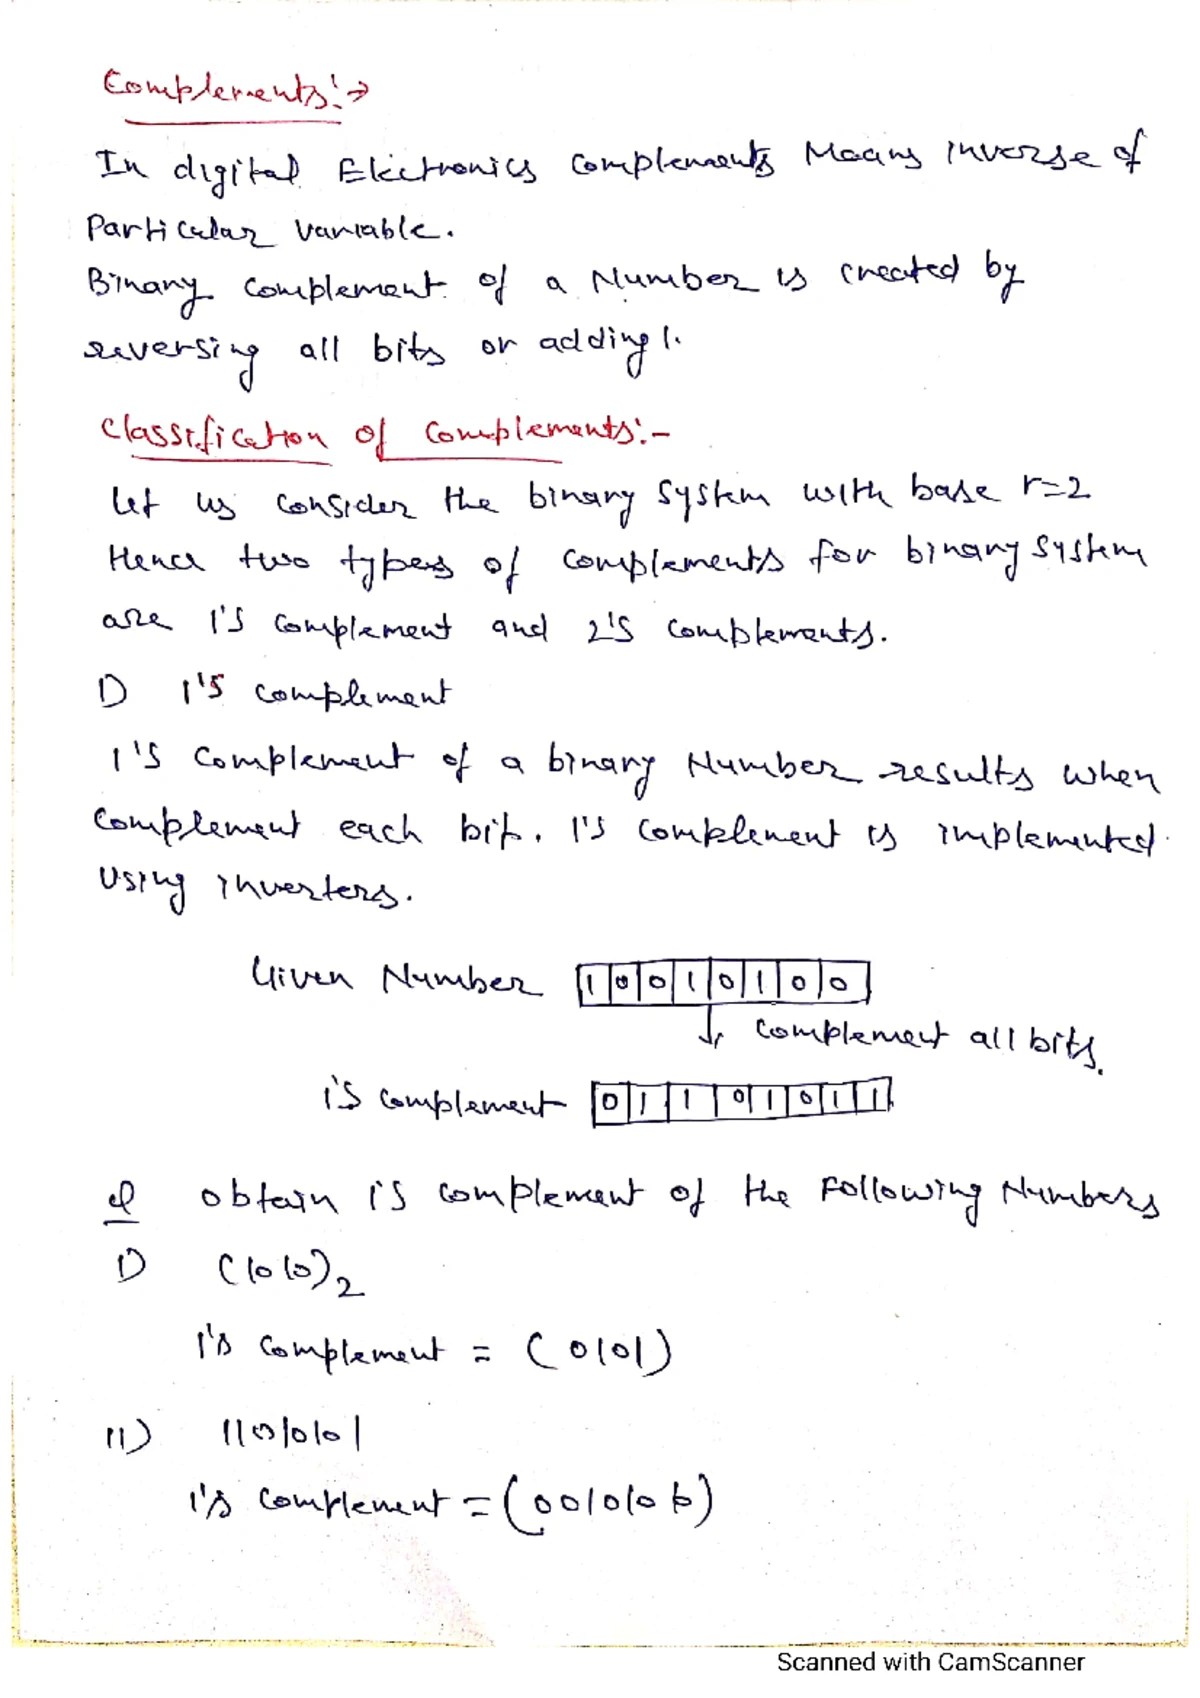 Complements:→
In digital Electronics complements Means inverse of
Particular variable.
Binary complement of a Number is created by
reversing all bits or adding 1.
Classification of Complements:-
Let us consider the binary system with base r=2
Hence two types of complements for binary system
are 1's complement and 2's complements.
1) 1's complement
1's complement of a binary Number results when
complement each bit. 1's complement is implemented
using inverters.
Given Number 1 0 0 1 0 1 0 0
complement all bits.
1's complement 0 1 1 0 1 0 1 1
Q obtain 1's complement of the Following Numbers
1) (1010)2
1's complement = (0101)
11) 11010101
1's complement = (0010100)
Scanned with CamScanner